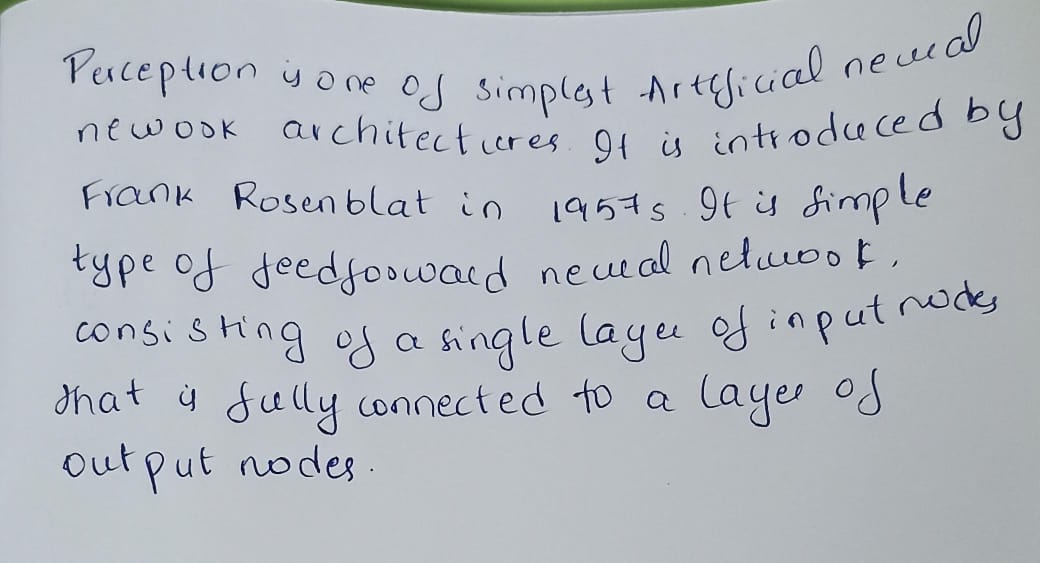 Perception is one of simplest Artificial neural
newook architectures. It is introduced by
Frank Rosenblat in 1957s. It is simple
type of feedfooward neural netwook,
consisting of a single layer of input nodes
that is fully connected to a layer of
output nodes.